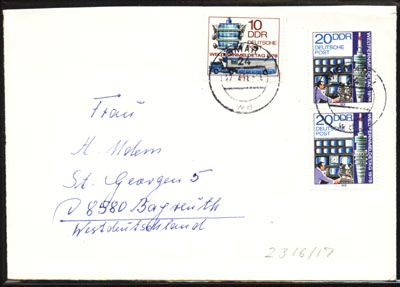 10 DDR
DEUTSCHE
POST
WELTFERNMELDETAG 1978
24
20 DDR
DEUTSCHE
POST
WELTFERNMELDETAG 1978
20 DDR
DEUTSCHE
POST
WELTFERNMELDETAG 1978
Frau
St. Georgen 5
D 8580 Bayreuth
Westdeutschland
2316/17